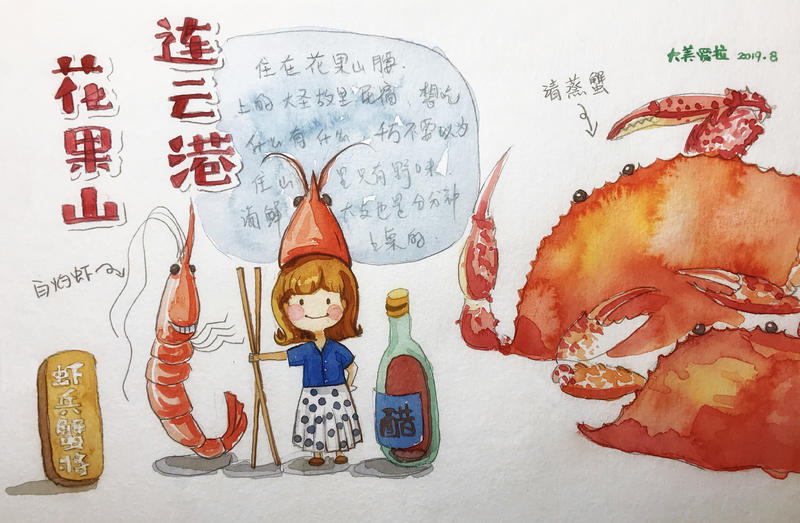 连云港
花果山
住在花果山腰.
上的大圣故里民宿、想吃
什么有什么、千万不要以为
住山里只有野味.
海鲜大餐也是分分钟
上桌的.
大美 拉 2019.8
清蒸蟹
白灼虾
虾兵蟹将
醋